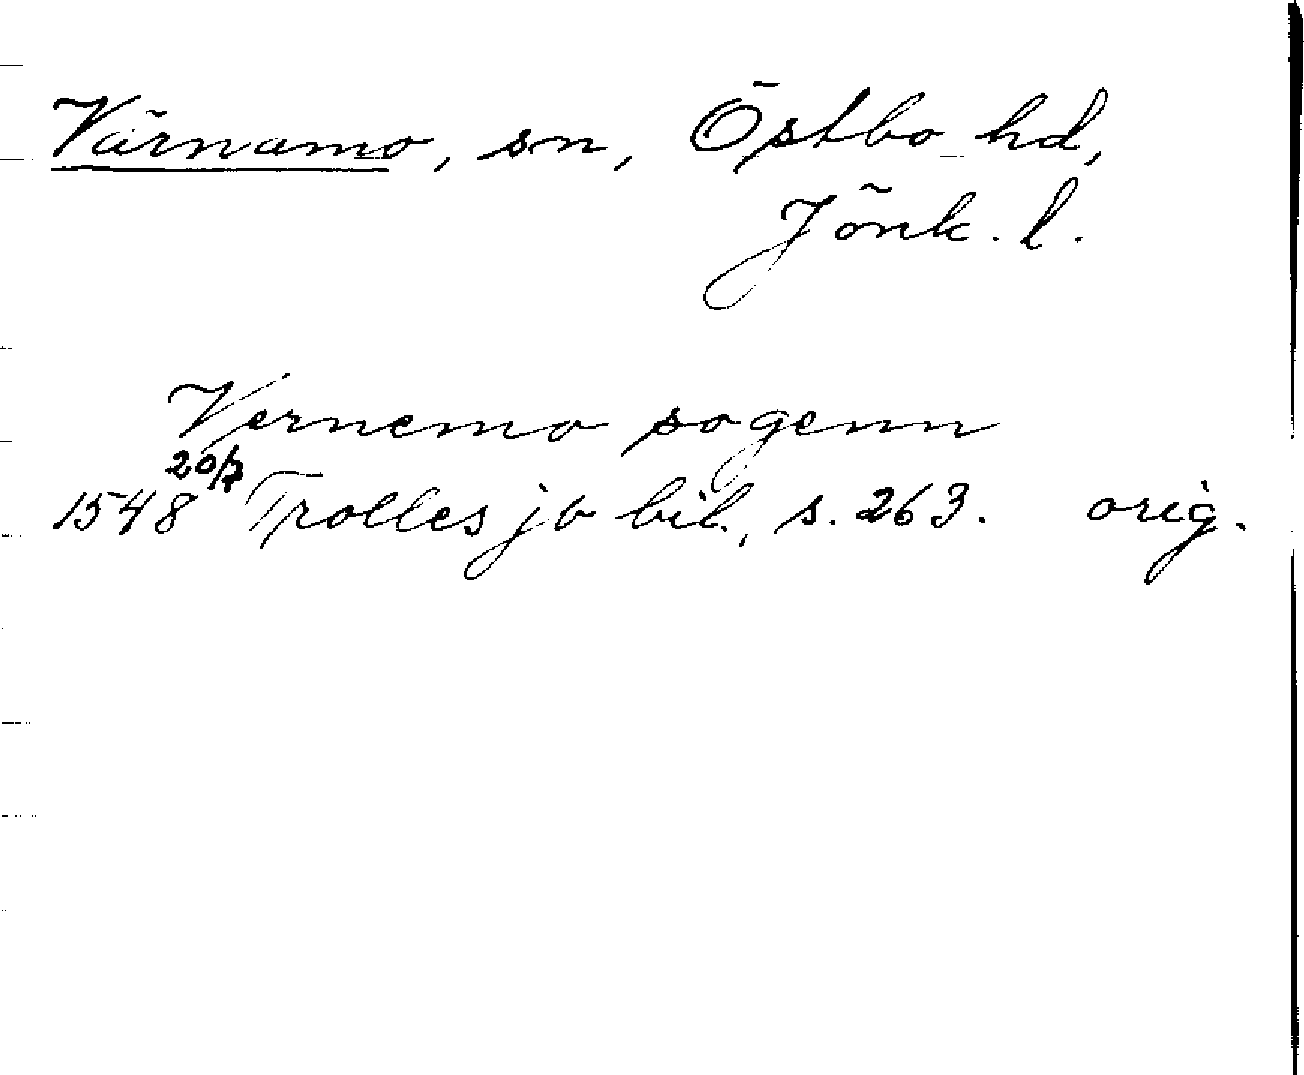 Värnamo, sn, Östbo hd,
Jönk. l.
Vernemo sogenn
1548 20/7 Trolles jb bil., s. 263. orig.